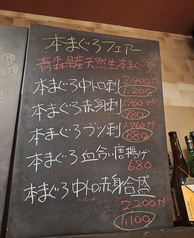 本まぐろフェアー
青森県産天然生本まぐろ
本まぐろ中トロ刺 2,400円 1,200
本まぐろ赤身刺 780
本まぐろブツ刺 880
本まぐろ血合い唐揚げ
680
本まぐろ中トロ赤身合盛
2,200円
1,100